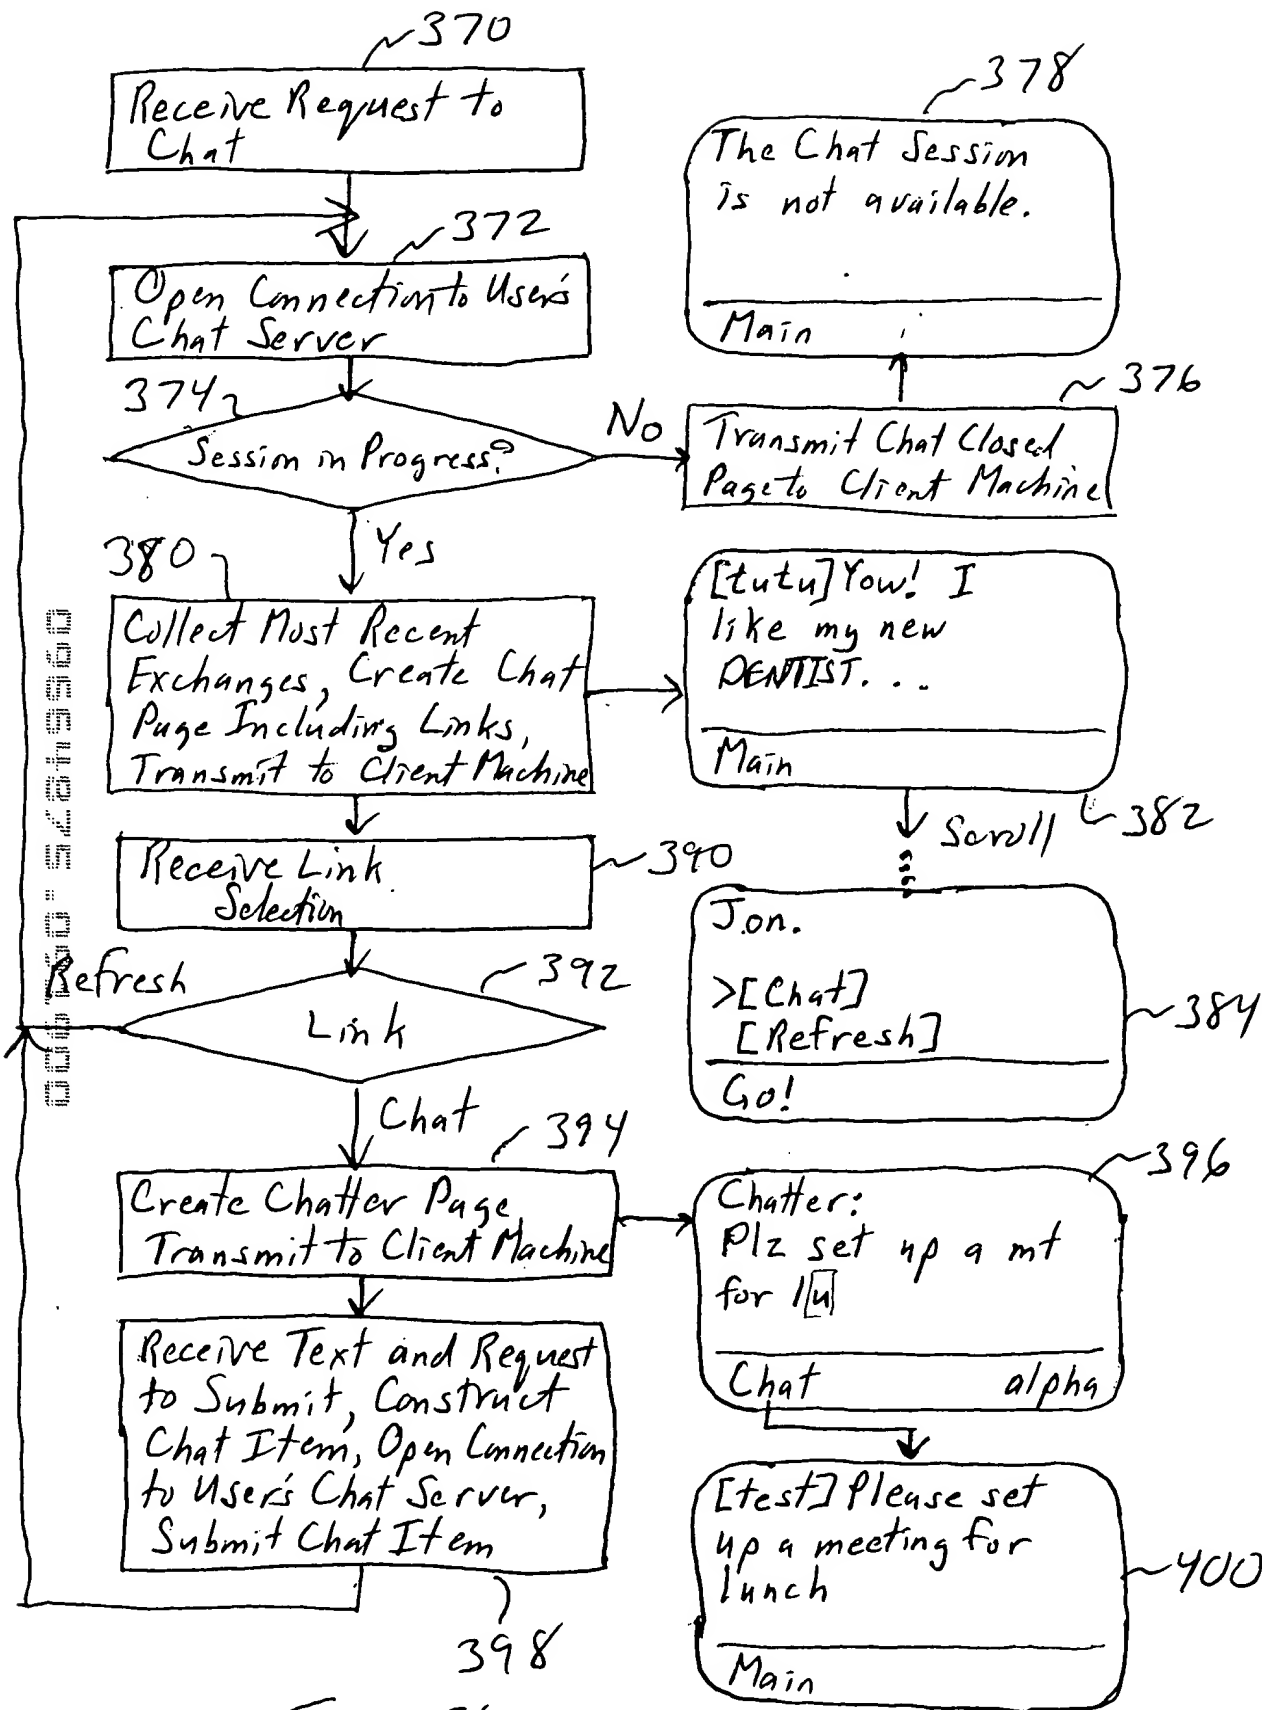 370
Receive Request to
Chat
378
The Chat Session
is not available.
Main
372
Open Connection to User's
Chat Server
374
Session in Progress?
No
376
Transmit Chat Closed
Page to Client Machine
Yes
380
Collect Most Recent
Exchanges, Create Chat
Page Including Links,
Transmit to Client Machine
[tutu] Yow! I
like my new
DENTIST...
Main
382
Scroll
390
Receive Link
Selection
Jon.
>[Chat]
[Refresh]
Go!
384
Refresh
392
Link
Chat
394
Create Chatter Page
Transmit to Client Machine
396
Chatter:
Plz set up a mt
for lu
Chat alpha
Receive Text and Request
to Submit, Construct
Chat Item, Open Connection
to User's Chat Server,
Submit Chat Item
398
[test] Please set
up a meeting for
lunch
Main
400